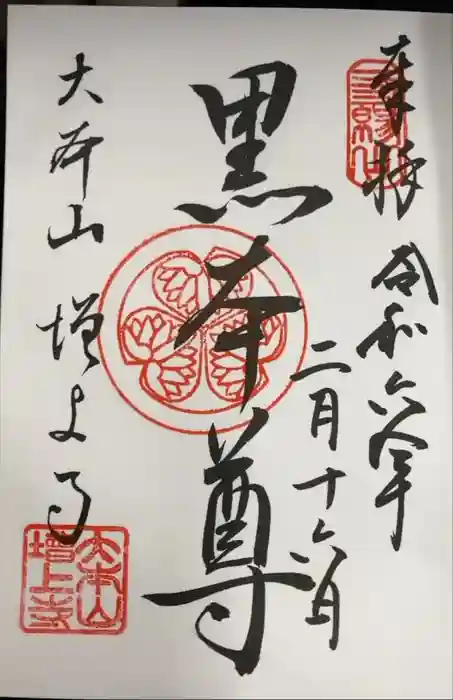 奉拝
令和六年
二月十六日
黒本尊
大本山 増上寺
三縁山
大本山
増上寺